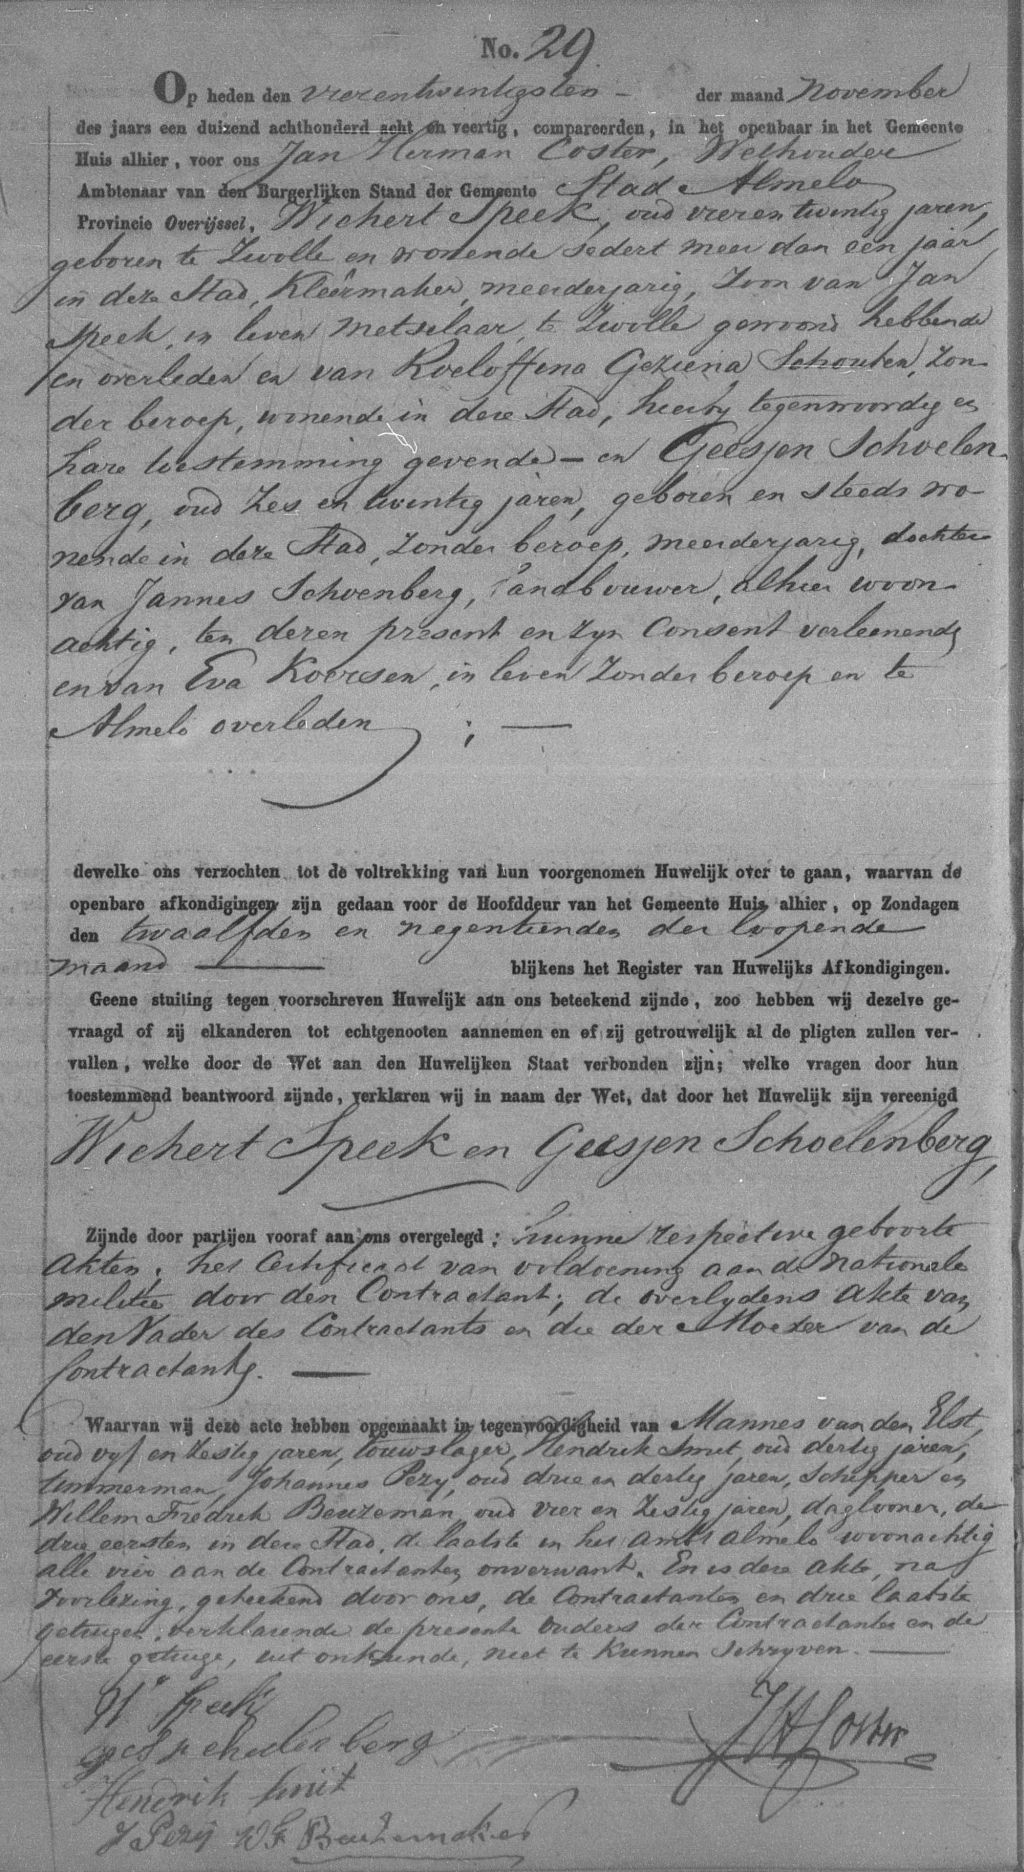 No. 29.
Op heden den vierentwintigsten der maand November
des jaars een duizend achthonderd acht en veertig, compareerden, in het openbaar in het Gemeente
Huis alhier, voor ons Jan Herman Coster, Wethouder
Ambtenaar van den Burgerlijken Stand der Gemeente Stad Almelo
Provincie Overijssel, Wichert Speek, oud vierentwintig jaren,
geboren te Zwolle en wonende sedert meer dan een jaar
in deze Stad, Kleêrmaker, meerderjarig, Zoon van Jan
Speek, in leven Metselaar, te Zwolle gewoond hebbende
en overleden en van Roeloffina Geziena Schouten, zon
der beroep, wonende in deze Stad, hierby tegenwoordig en
hare toestemming gevende – en Geesjen Schoelen
berg, oud zes en twintig jaren, geboren en steeds wo-
nende in deze Stad, zonder beroep, meerderjarig, dochter
van Jannes Schoenberg, Landbouwer, alhier woon
achtig, ten deren present en zyn Consent verleenende
en van Eva Koersen, in leven zonder beroep en te
Almelo overleden ; —
dewelke ons verzochten tot de voltrekking van hun voorgenomen Huwelijk over te gaan, waarvan de
openbare afkondigingen zijn gedaan voor de Hoofddeur van het Gemeente Huis alhier, op Zondagen
den twaalfden en negentienden der loopende
maand — blijkens het Register van Huwelijks Afkondigingen.
Geene stuiting tegen voorschreven Huwelijk aan ons beteekend zijnde, zoo hebben wij dezelve ge-
vraagd of zij elkanderen tot echtgenooten aannemen en of zij getrouwelijk al de pligten zullen ver-
vullen, welke door de Wet aan den Huwelijken Staat verbonden zijn; welke vragen door hun
toestemmend beantwoord zijnde, verklaren wij in naam der Wet, dat door het Huwelijk zijn vereenigd
Wichert Speek en Geesjen Schoelenberg,
Zijnde door partijen vooraf aan ons overgelegd: hunne respective geboorte
Akten; het Certificaat van voldoening aan de Nationale
militie door den Contractant; de overlydens Akte van
den Vader des Contractants en die der Moeder van de
Contractante. —
Waarvan wij deze acte hebben opgemaakt in tegenwoordigheid van Mannes van den Elst,
oud vyf en zestig jaren, touwslager, Hendrik Smit, oud dertig jaren,
timmerman, Johannes Pezy, oud drie en dertig jaren, Schipper en
Willem Fredrik Beuzeman, oud vier en zestig jaren, daglooner, de
drie eersten in deze Stad, de laatste in het Ambt Almelo woonachtig
alle vier aan de Contractanten onverwant. En is deze akte, na
voorlezing, geteekend door ons, de Contractanten en drie laatste
getuigen, verklarende de presente ouders der Contractanten en de
eerste getuige, uit onkunde, niet te kunnen Schryven. —
W Speek
JHCoster
Hendrik Smit
J Pezij W F Beuzemaker